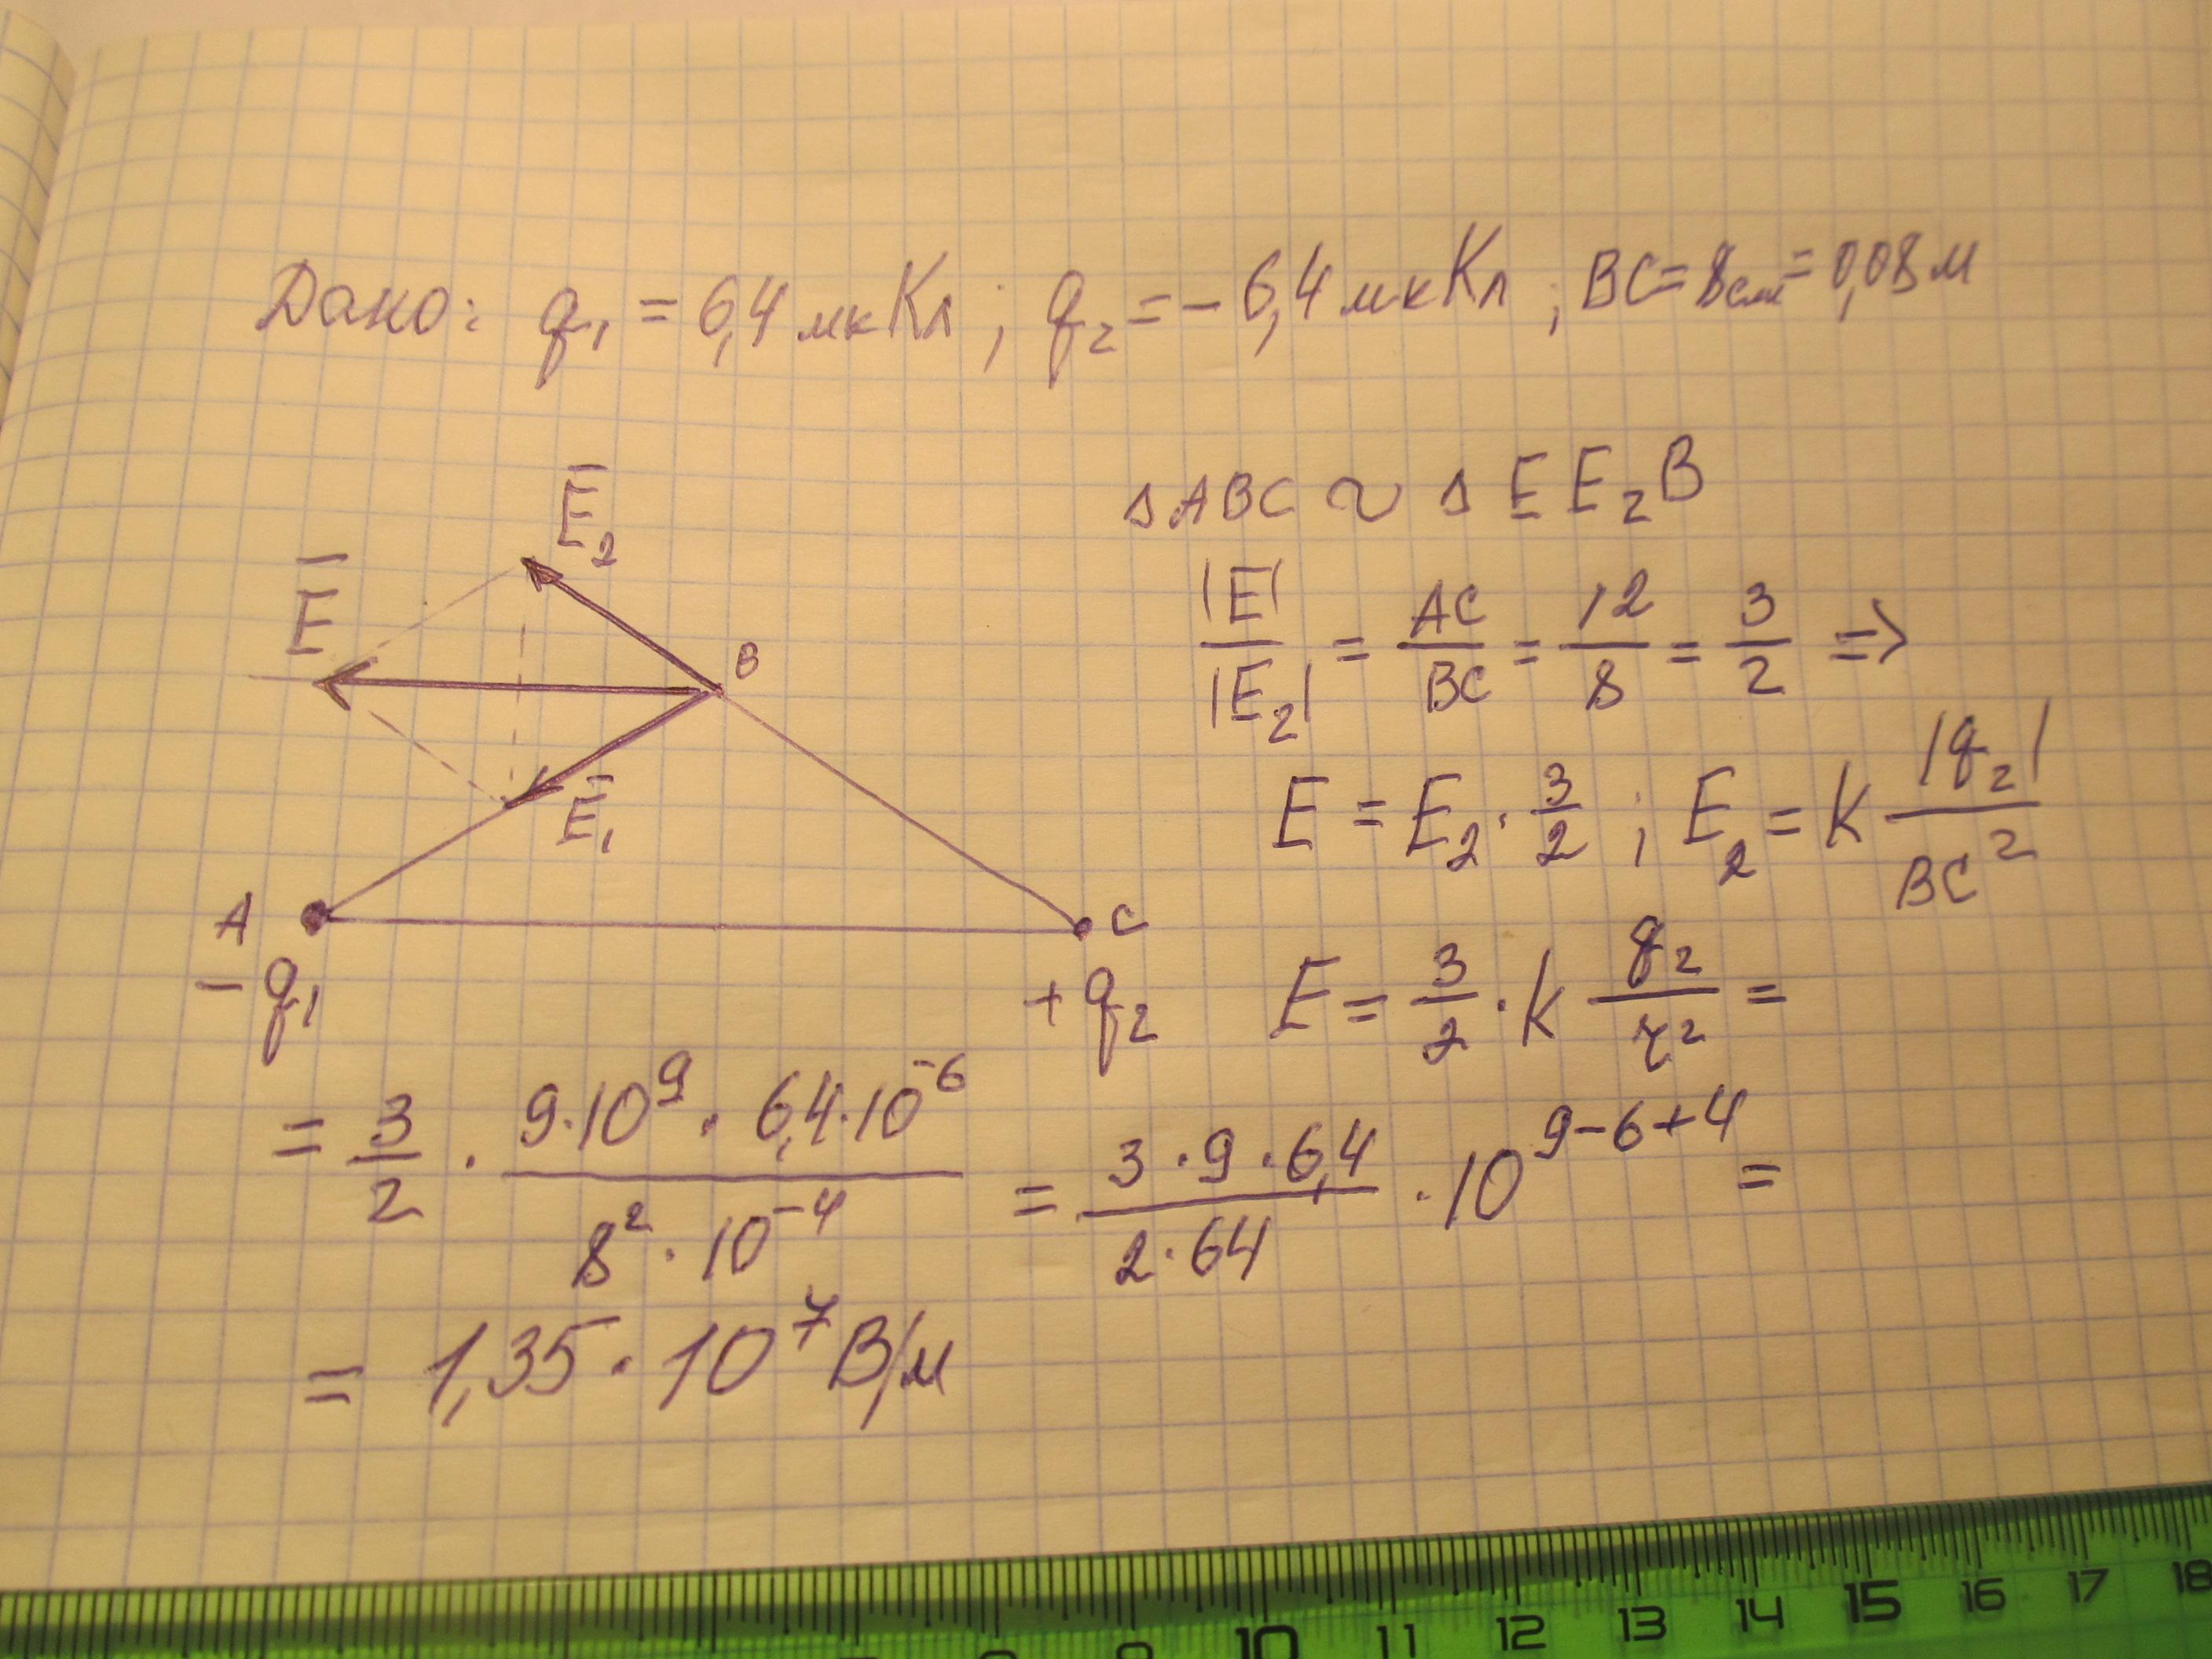 Дано: q₁ = 6,4 мкКл ; q₂ = - 6,4 мкКл ; BC = 8см = 0,08м
△ABC ~ △EE₂B
|E|/|E₂| = AC/BC = 12/8 = 3/2 =>
E = E₂ · 3/2 ; E₂ = k |q₂|/BC²
E = 3/2 · k q₂/r² =
= 3/2 · 9·10⁹ · 6,4·10⁻⁶ / 8² · 10⁻⁴ = 3·9·6,4 / 2·64 · 10⁹⁻⁶⁺⁴ =
= 1,35 · 10⁷ В/м
E̅₂
E̅
B
E̅₁
A
C
- q₁
+ q₂
10 11 12 13 14 15 16 17 18